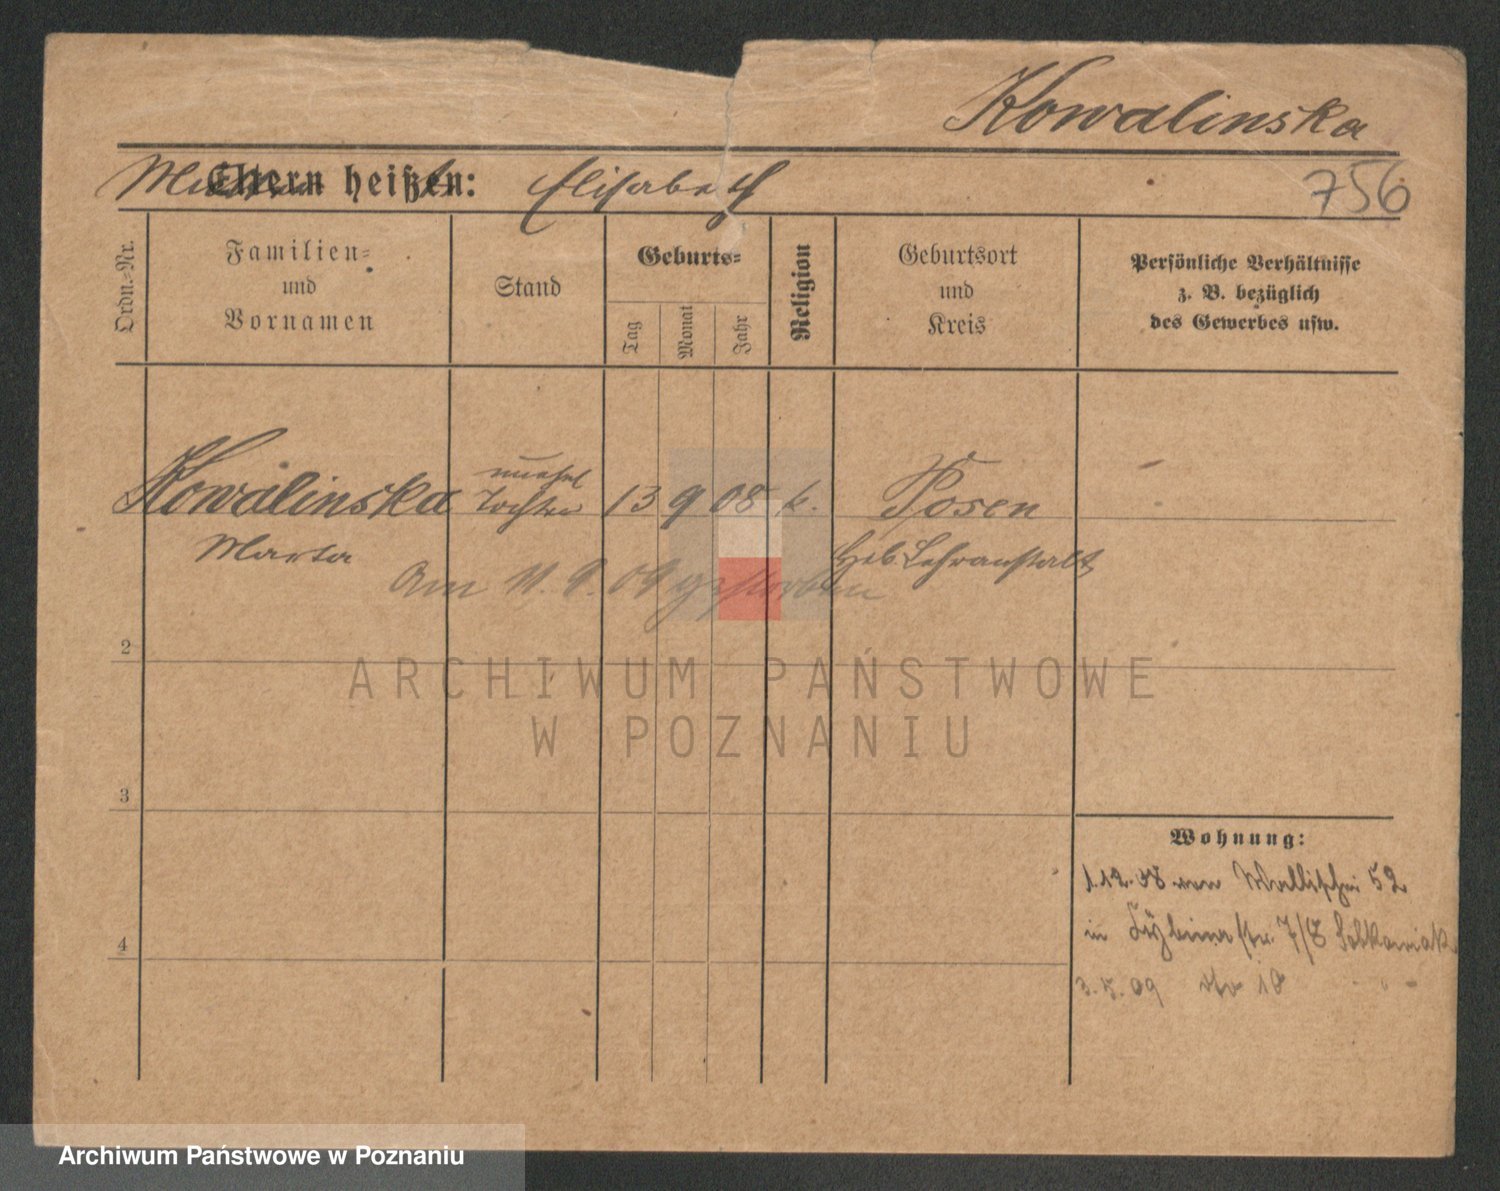 Kowalinska
Mutter
Eltern heißen: Elisabeth
756
Ordn.-Nr.
Familien-
und
Vornamen
Stand
Geburts-
Tag
Monat
Jahr
Religion
Geburtsort
und
Kreis
Persönliche Verhältnisse
z. B. bezüglich
des Gewerbes usw.
unehel
Kowalinska Tochter 13 9 08 k. Posen
Marta Heb. Lehranstalt
Am 11. 9. 09 gestorben
2
ARCHIWUM PAŃSTWOWE
W POZNANIU
3
Wohnung:
1.12.08 von Wallischei 52
in 7/8
4
3. 5. 09 18
Archiwum Państwowe w Poznaniu